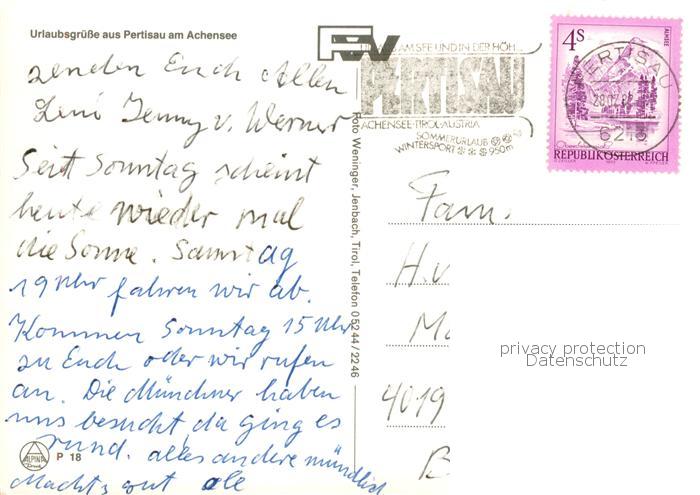 Urlaubsgrüße aus Pertisau am Achensee
senden Euch Allen
Leni Jenny v. Werner
Seit Sonntag scheint
heute wieder mal
die Sonne. Samstag
19 Uhr fahren wir ab.
Kommen Sonntag 15 Uhr
zu Euch oder wir rufen
an. Die Münchner haben
uns besucht, da ging es
rund. alles andere mündlich
Macht's gut alle
ALPINA
Druck
P 18
Foto Weninger, Jenbach, Tirol, Telefon 05244/2246
AM SEE UND IN DER HÖH
PERTISAU
ACHENSEE-TIROL-AUSTRIA
SOMMERURLAUB
WINTERSPORT 950m
4S
ALMSEE
PERTISAU
6213
REPUBLIK ÖSTERREICH
Fam.
H.v
4019
privacy protection
Datenschutz